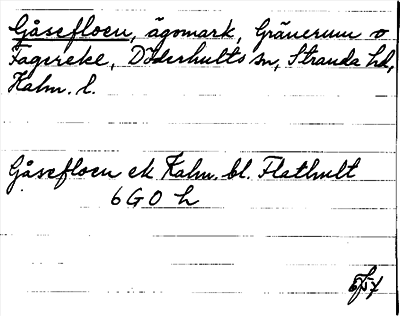 Gåsefloen, ägomark, Gränerum o
Fagereke, Döderhults sn, Stranda hd,
Kalm. l.
Gåsefloen ek Kalm. bl. Flathult
6 G 0 h